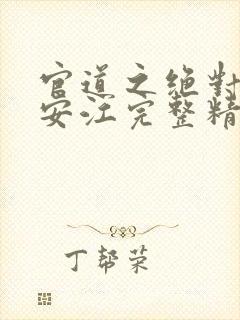 官道之绝對
安江完整精
丁帮荣